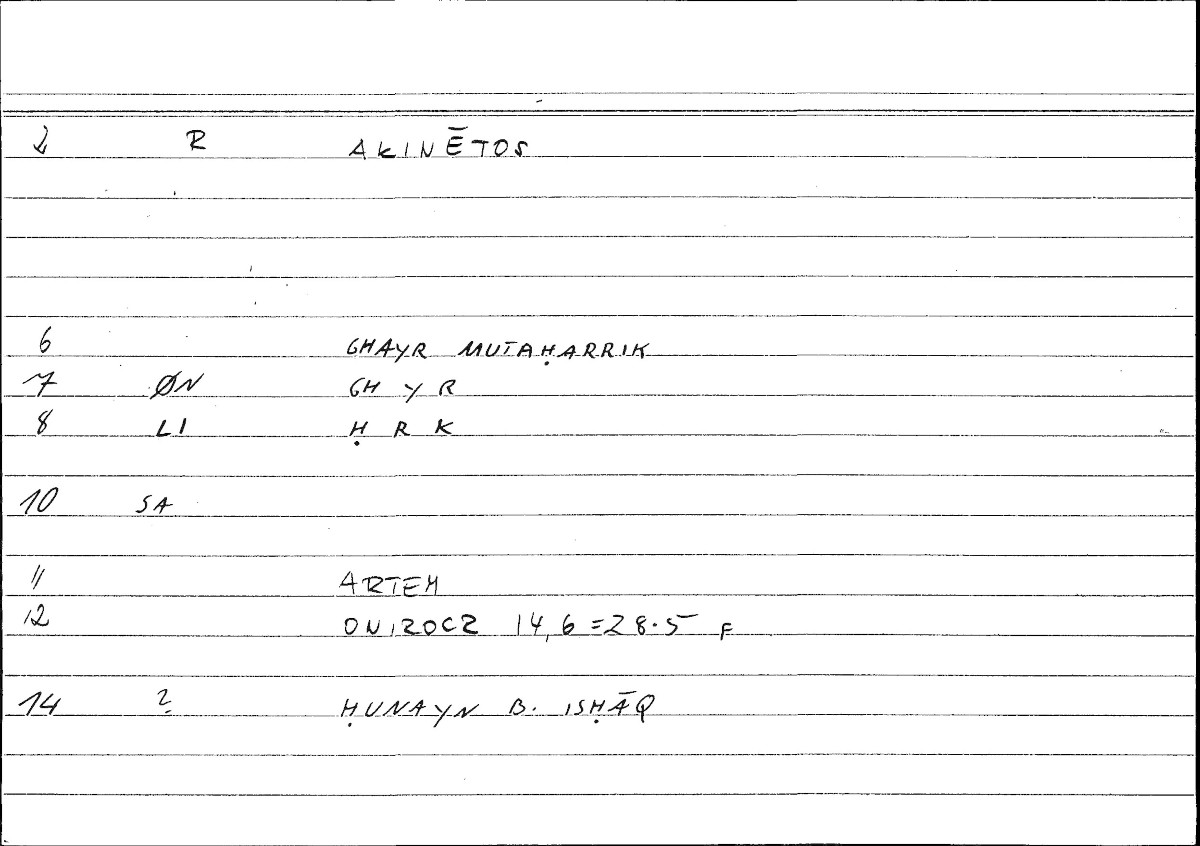 2 R AKINĒTOS
6 GHAYR MUTAḤARRIK
7 ØN GH Y R
8 LI Ḥ R K
10 SA
11 ARTEM
12 ONIROCR 14,6 = 28.5 F
14 2 ḤUNAYN B. ISḤĀQ